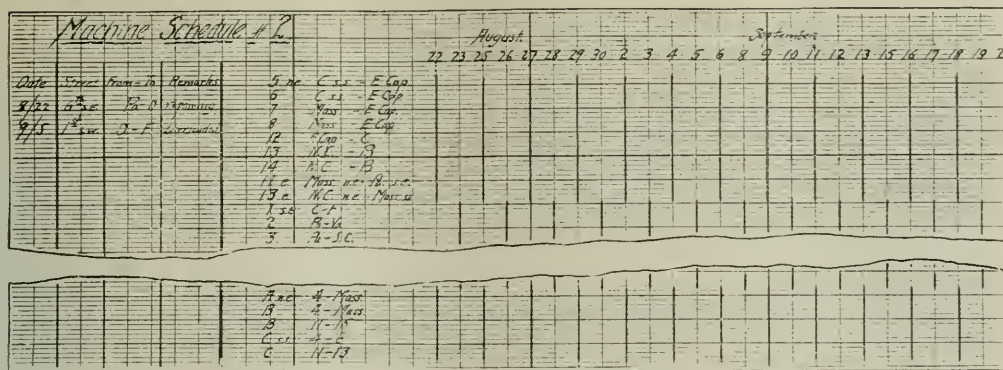 Machine Schedule #2
August
September
22 23 25 26 27 28 29 30 2 3 4 5 6 8 9 10 11 12 13 15 16 17 18 19 2
Date Street From-To Remarks
8/22 6th s.e. Pa-G repairing
9/5 1st s.w. D-F
5 n.e. C s.s. - E Cap
6 C s.s. - E Cap
7 Mass - E Cap
8 Mass - E Cap
12 E Cap - C
13 N.C. - B
14 N.C. - B
11 e. Mass. n.e.- Pa. s.e.
13 e. N.C. n.e. - Mass. s.e.
1 s.e. C-F
2 B-Va
3 Pa-S.C.
A n.e. 4-Mass.
B 4-Mass.
B 11-15
C s.s. 4-6
C 11-13